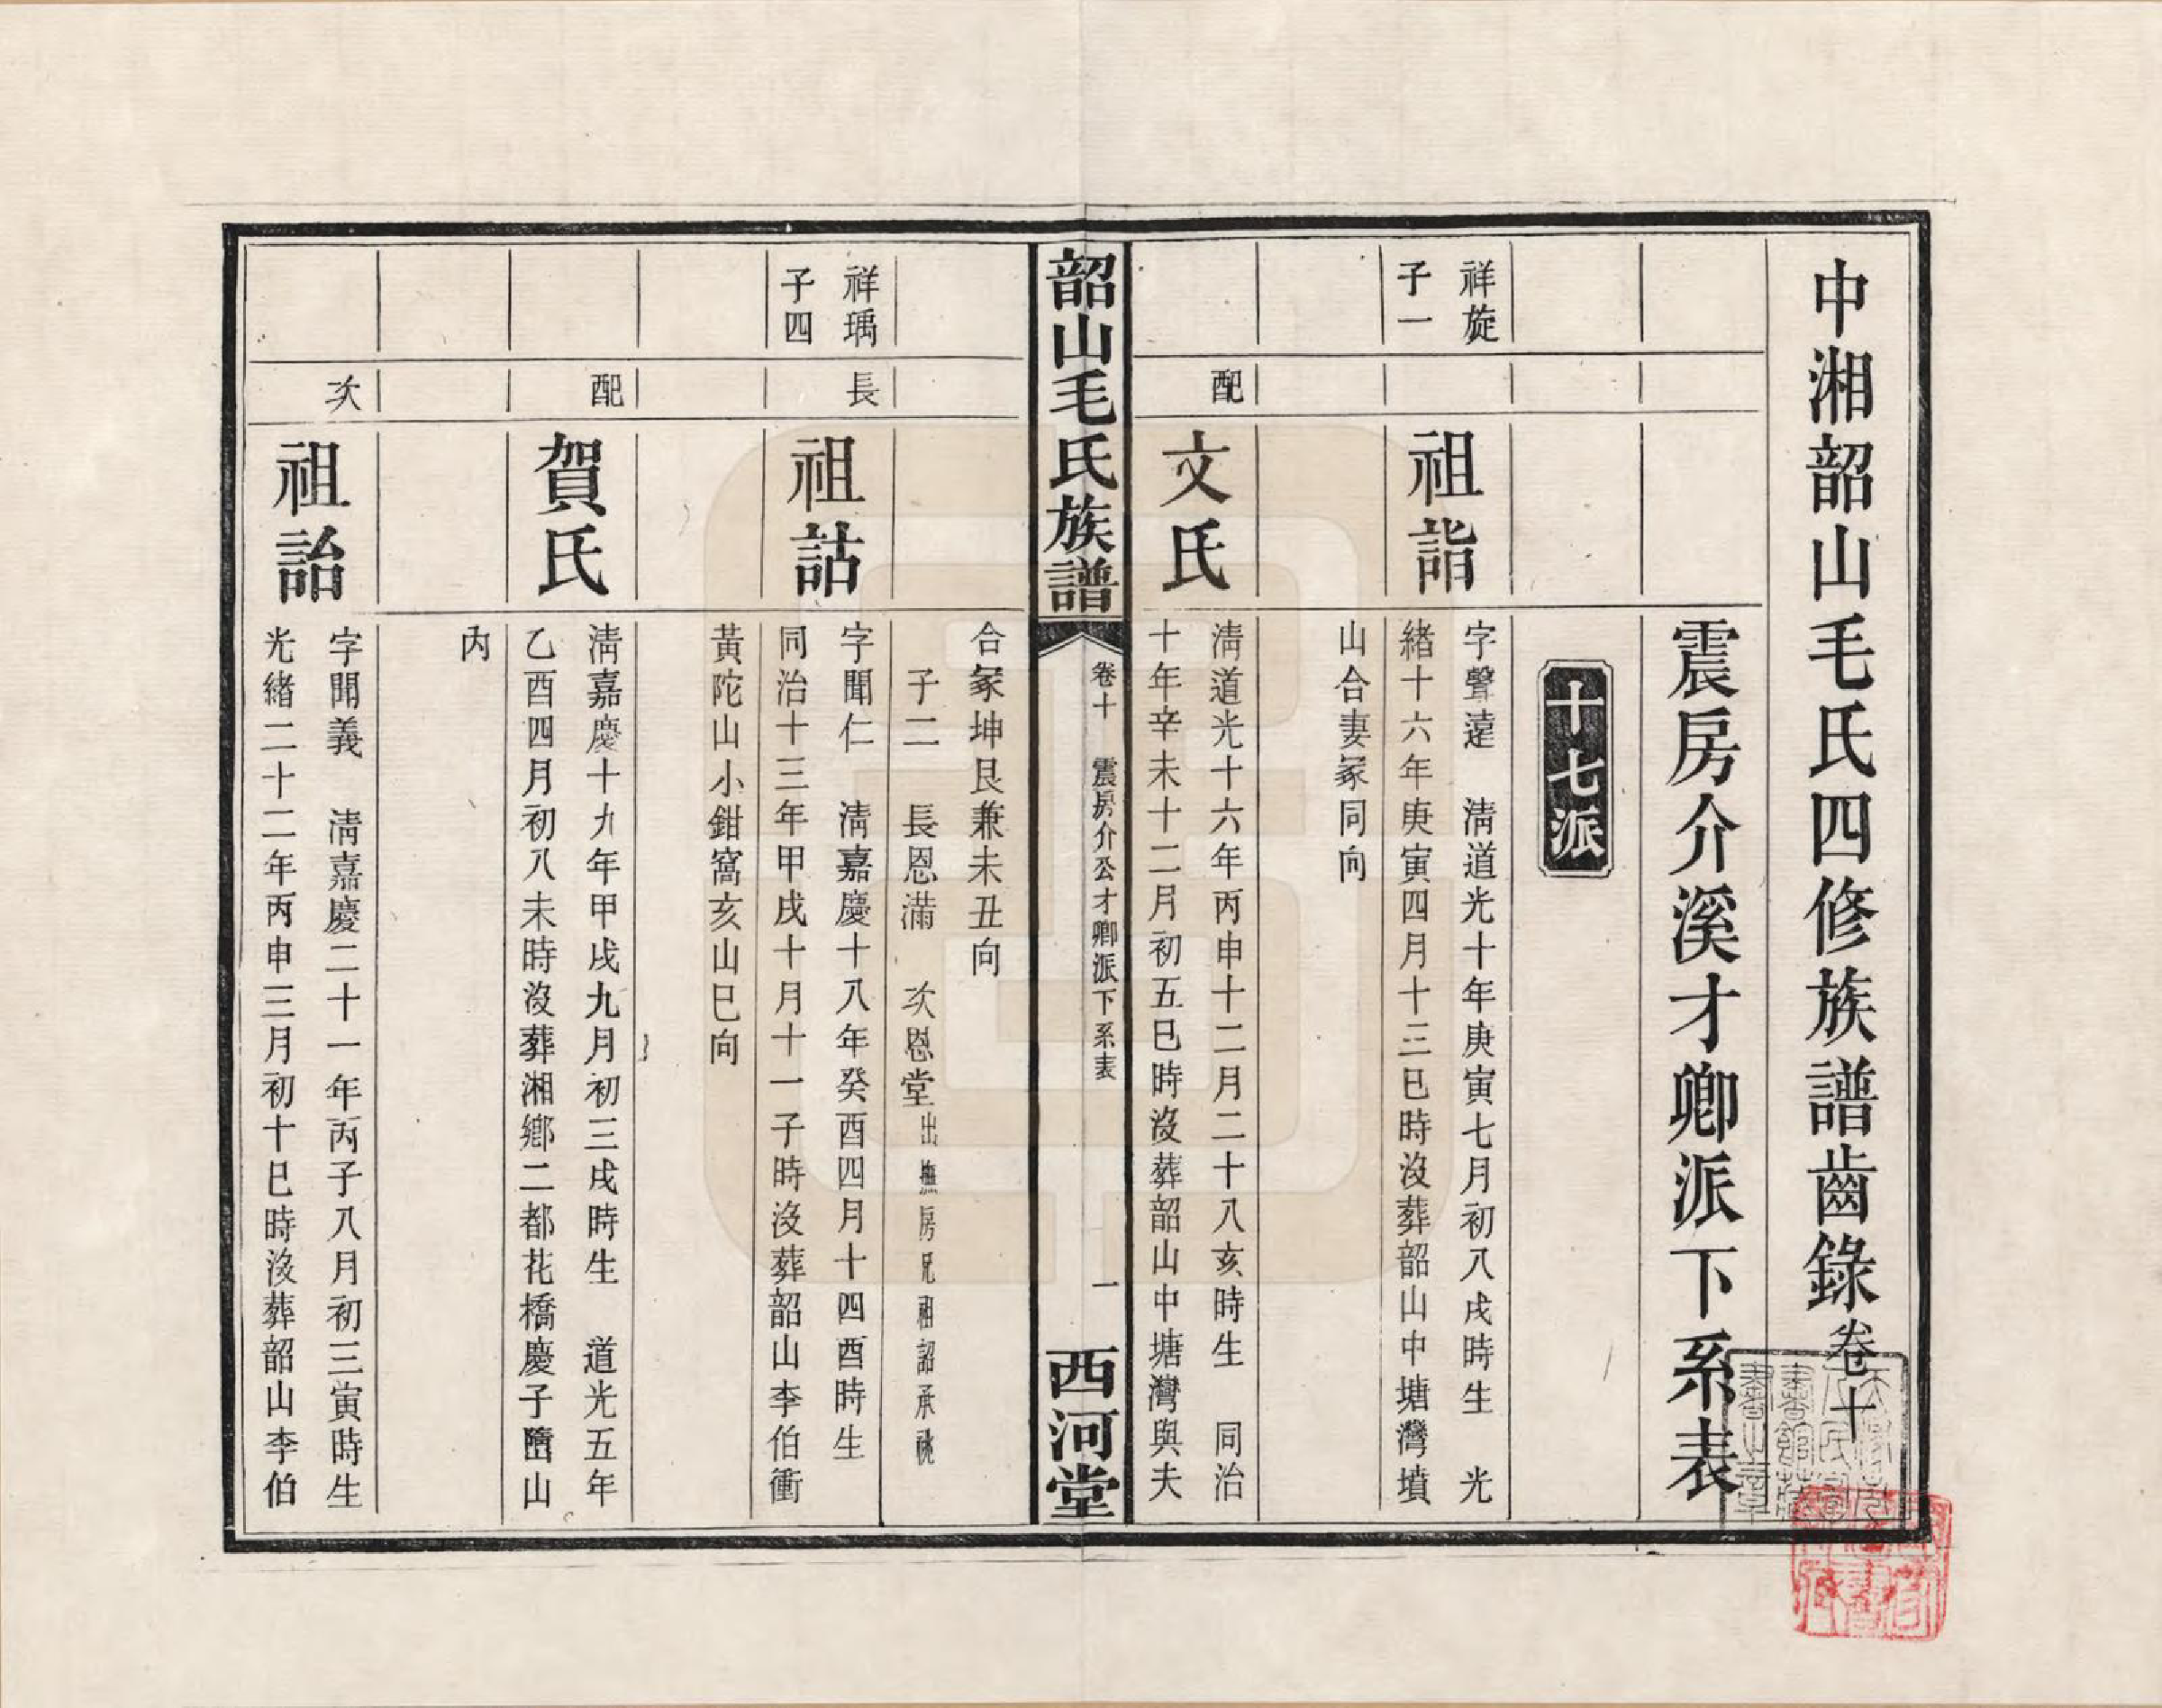 中湘韶山毛氏四修族譜齒錄卷十
震房介溪才卿派下系表
十七派
祥旋
子一
祖詣
字聲遠　清道光十年庚寅七月初八戌時生　光
緒十六年庚寅四月十三巳時沒葬韶山中塘灣墳
山合妻冢同向
配
文氏
清道光十六年丙申十二月二十八亥時生　同治
十年辛未十二月初五巳時沒葬韶山中塘灣與夫
韶山毛氏族譜
卷十　震房介公才卿派下系表
一
西河堂
合冢坤艮兼未丑向
子二　長恩滿　次恩堂出撫房兄祖詔承祧
祥瑀
子四
長
祖詁
字聞仁　清嘉慶十八年癸酉四月十四酉時生
同治十三年甲戌十月十一子時沒葬韶山李伯衝
黃陀山小鉗窩亥山巳向
配
賀氏
清嘉慶十九年甲戌九月初三戌時生　道光五年
乙酉四月初八未時沒葬湘鄉二都花橋慶子嶞山
內
次
祖詒
字聞義　清嘉慶二十一年丙子八月初三寅時生
光緒二十二年丙申三月初十巳時沒葬韶山李伯